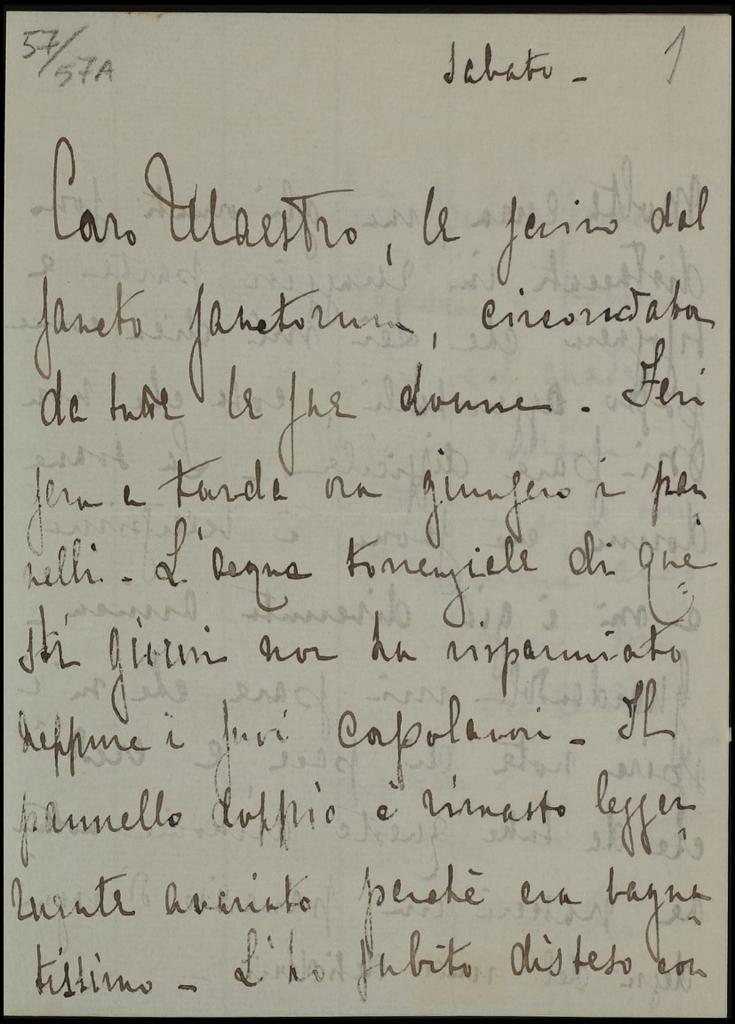 57/57A
Sabato - 1
Caro Maestro, le scrivo dal
Sancto Sanctorum, circondata
da tutte le sue donne. Ieri
sera a tarda ora giunsero i pan
nelli - L'acqua torrenziale di que=
sti giorni non ha risparmiato
neppure i suoi capolavori - Il
pannello doppio è rimasto legger
mente avariato perchè era bagna
tissimo - L'ho subito disteso con